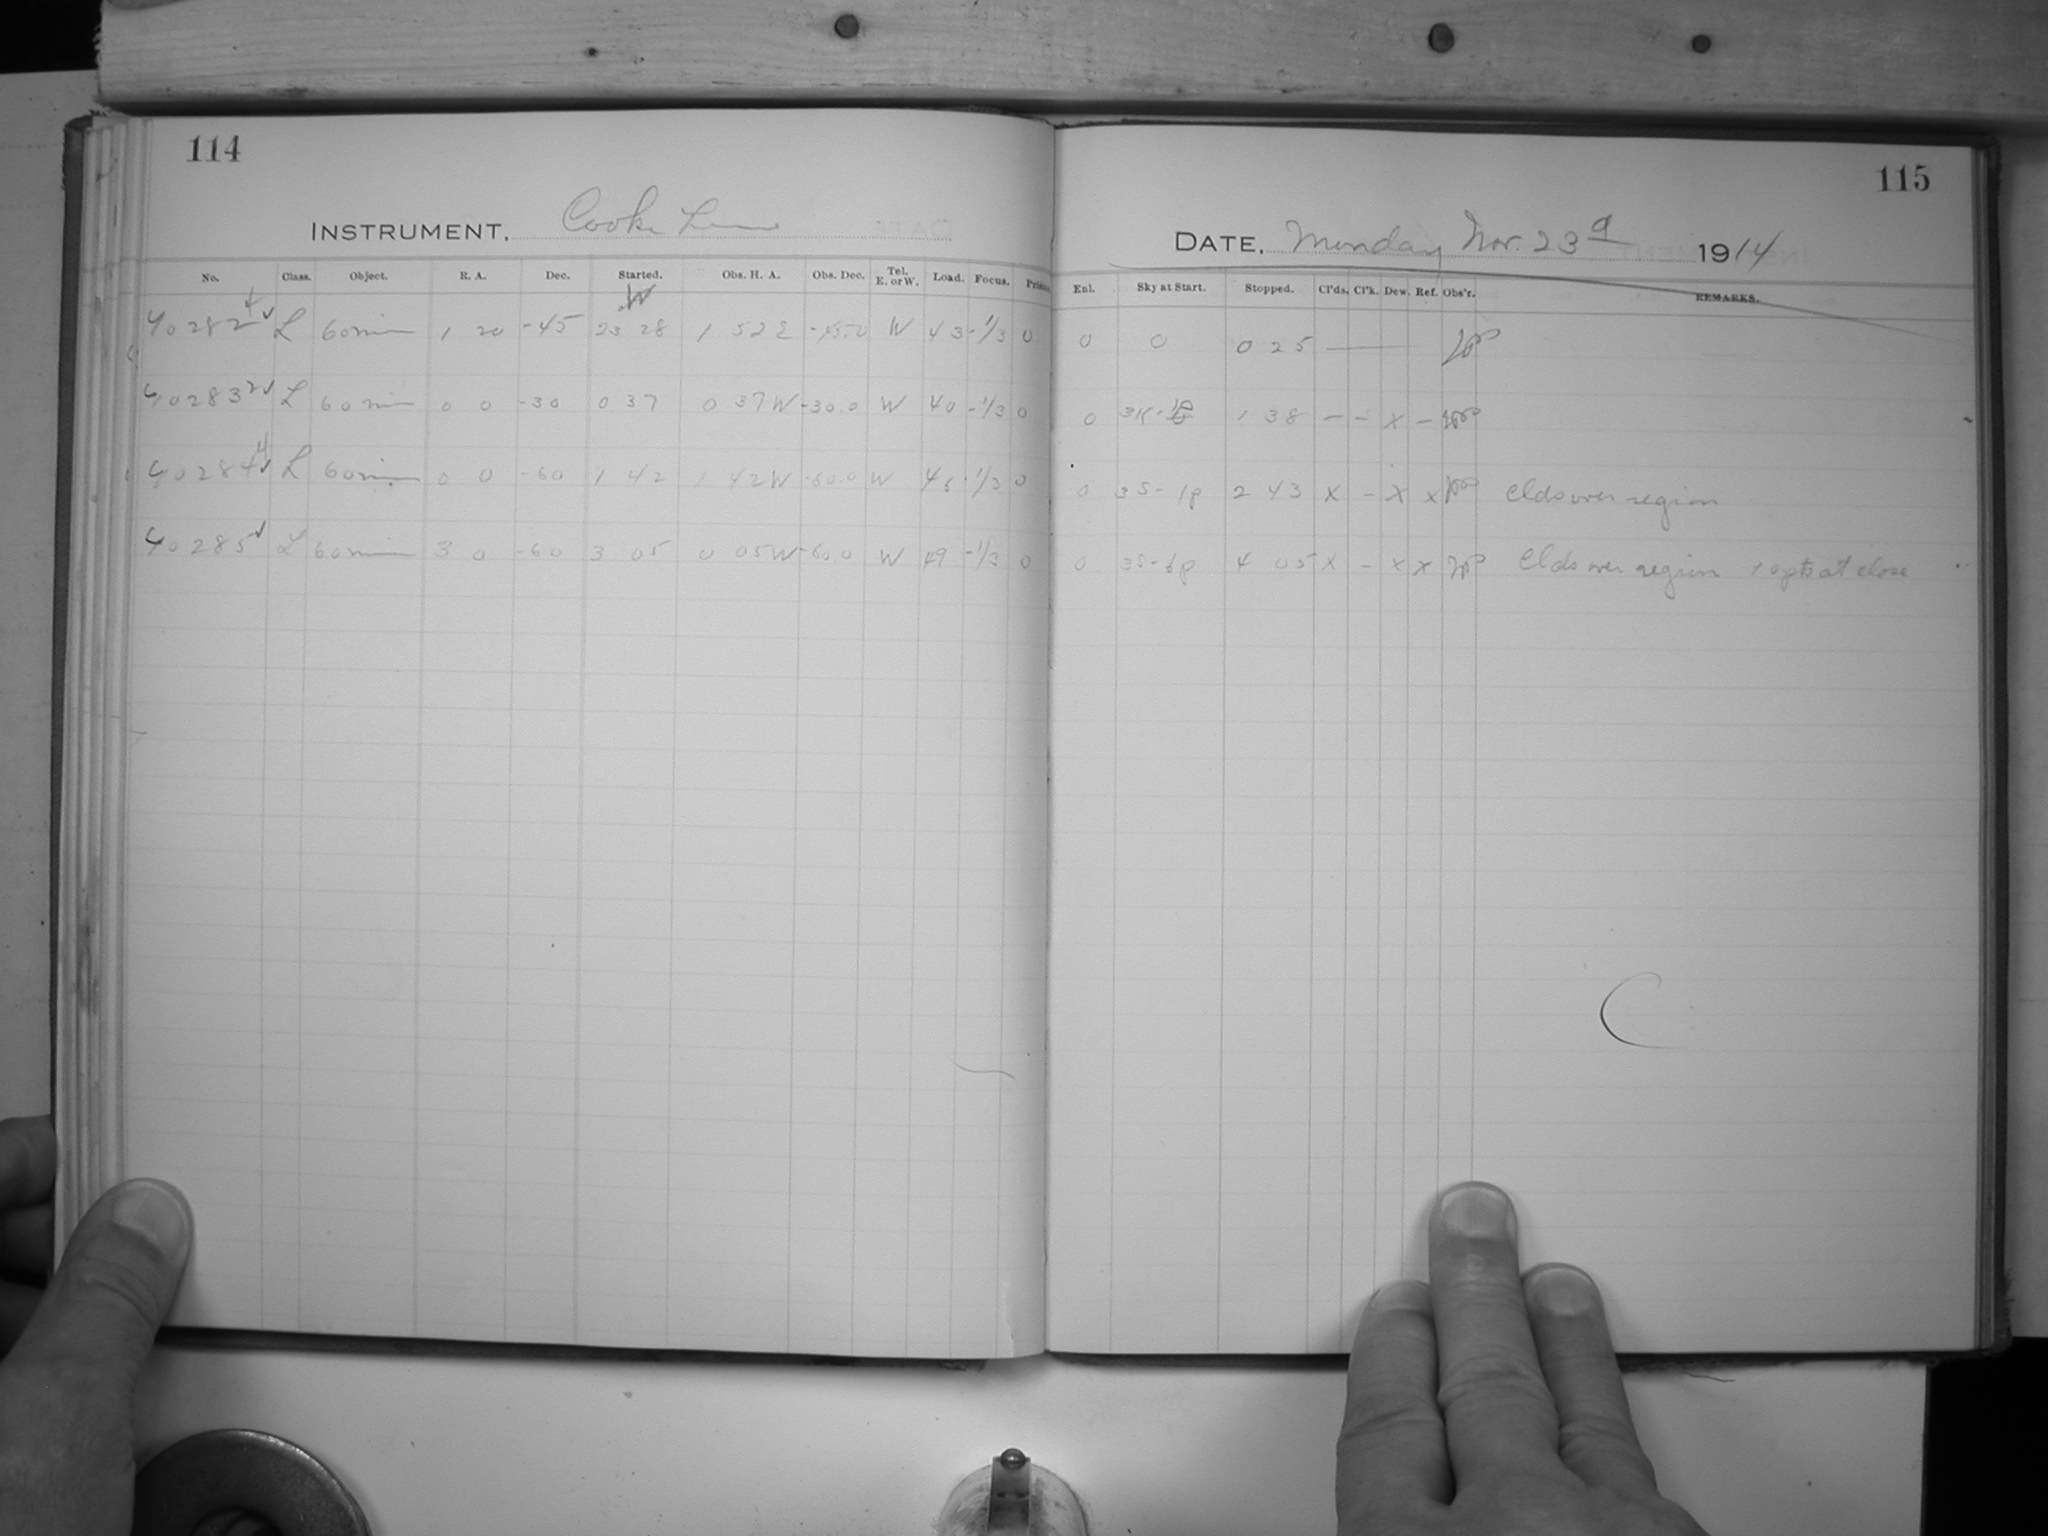 114
INSTRUMENT, Cooke Lens
No. Class. Object. R. A. Dec. Started. Obs. H. A. Obs. Dec. Tel. E. or W. Load. Focus. Prism.
W
40282 4 √ L 60 min 1 20 -45 23 28 1 52 E -45.0 W 43 -1/3 0
40283 2 √ L 60 min 0 0 -30 0 37 0 37 W -30.0 W 40 -1/3 0
40284 4 √ L 60 min 0 0 -60 1 42 1 42 W -60.0 W 46 -1/3 0
40285 √ L 60 min 3 0 -60 3 05 0 05 W -60.0 W 49 -1/3 0
115
DATE, Monday Nov. 23 a 1914
Enl. Sky at Start. Stopped. Cl'ds. Cl'k. Dew. Ref. Obs'r. REMARKS.
0 0 0 25 —
0 1 38 - - x -
0 3S-1p 2 43 x - x x Clds over region
0 3S-6p 4 05 x - x x Clds over region at close